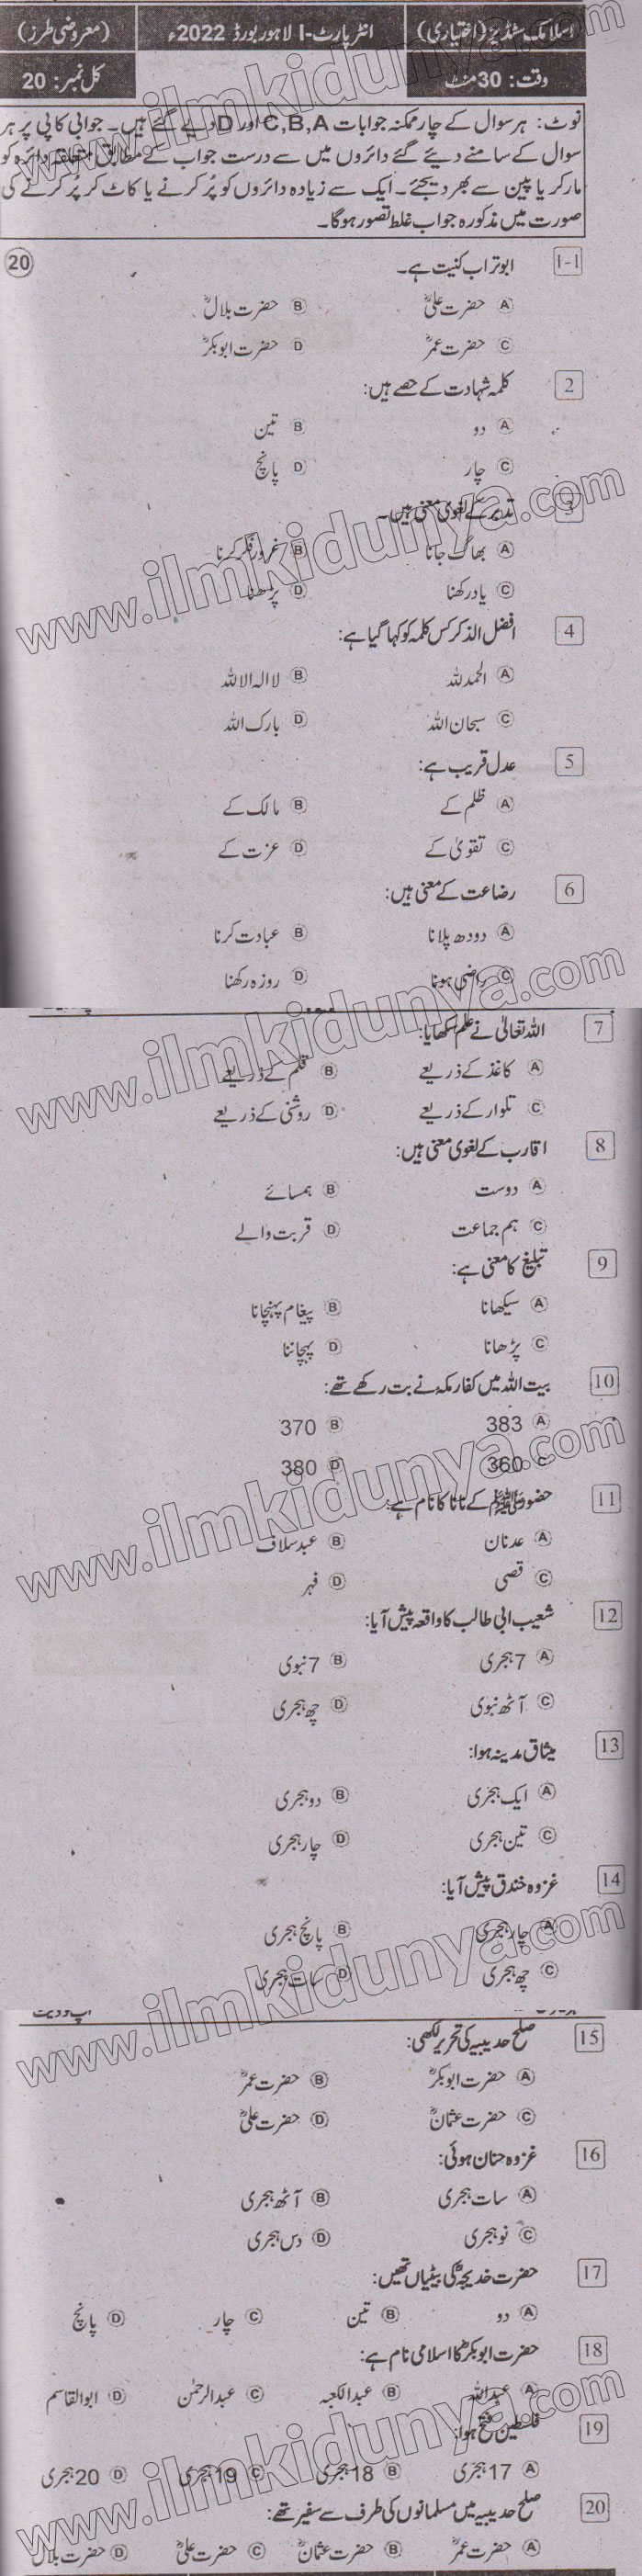 اسلامک سٹڈیز (اختیاری) انٹر پارٹ-I لاہور بورڈ 2022ء (معروضی طرز)
وقت: 30 منٹ کل نمبر: 20
نوٹ: ہر سوال کے چار ممکنہ جوابات C,B,A اور D دیے گئے ہیں۔ جوابی کاپی پر ہر
سوال کے سامنے دیئے گئے دائروں میں سے درست جواب کے مطابق متعلقہ دائرہ کو
مارکر یا پین سے بھر دیجئے۔ ایک سے زیادہ دائروں کو پُر کرنے یا کاٹ کر پُر کرنے کی
صورت میں مذکورہ جواب غلط تصور ہوگا۔
1-1 ابوتراب کنیت ہے۔ 20
A حضرت علیؓ B حضرت بلالؓ
C حضرت عمرؓ D حضرت ابوبکرؓ
2 کلمہ شہادت کے حصے ہیں:
A دو B تین
C چار D پانچ
3 تدبر کے لغوی معنی ہیں۔
A بھاگ جانا B غور و فکر کرنا
C یاد رکھنا D پڑھنا
4 افضل الذکر کس کلمہ کو کہا گیا ہے:
A الحمدللہ B لا الہ الا اللہ
C سبحان اللہ D بارک اللہ
5 عدل قریب ہے:
A ظلم کے B مالک کے
C تقویٰ کے D عزت کے
6 رضاعت کے معنی ہیں:
A دودھ پلانا B عبادت کرنا
C راضی ہونا D روزہ رکھنا
7 اللہ تعالیٰ نے علم سکھایا:
A کاغذ کے ذریعے B قلم کے ذریعے
C تلوار کے ذریعے D روشنی کے ذریعے
8 اقارب کے لغوی معنی ہیں:
A دوست B ہمسائے
C ہم جماعت D قربت والے
9 تبلیغ کا معنی ہے:
A سیکھانا B پیغام پہنچانا
C پڑھانا D پہچاننا
10 بیت اللہ میں کفار مکہ نے بت رکھے تھے:
A 383 B 370
C 360 D 380
11 حضور ﷺ کے نانا کا نام ہے:
A عدنان B عبد سلاف
C قصی D فہر
12 شعیب ابی طالب کا واقعہ پیش آیا:
A 7 ہجری B 7 نبوی
C آٹھ نبوی D چھ ہجری
13 میثاق مدینہ ہوا:
A ایک ہجری B دو ہجری
C تین ہجری D چار ہجری
14 غزوہ خندق پیش آیا:
A چار ہجری B پانچ ہجری
C چھ ہجری D سات ہجری
15 صلح حدیبیہ کی تحریر لکھی:
A حضرت ابوبکرؓ B حضرت عمرؓ
C حضرت عثمانؓ D حضرت علیؓ
16 غزوہ حنان ہوئی:
A سات ہجری B آٹھ ہجری
C نو ہجری D دس ہجری
17 حضرت خدیجہؓ کی بیٹیاں تھیں:
A دو B تین C چار D پانچ
18 حضرت ابوبکرؓ کا اسلامی نام ہے:
A عبداللہ B عبدالکعبہ C عبدالرحمٰن D ابوالقاسم
19 فلسطین فتح ہوا:
A 17 ہجری B 18 ہجری C 19 ہجری D 20 ہجری
20 صلح حدیبیہ میں مسلمانوں کی طرف سے سفیر تھے:
A حضرت عمرؓ B حضرت عثمانؓ C حضرت علیؓ D حضرت بلالؓ
www.ilmkidunya.com
www.ilmkidunya.com
www.ilmkidunya.com
www.ilmkidunya.com
www.ilmkidunya.com
www.ilmkidunya.com